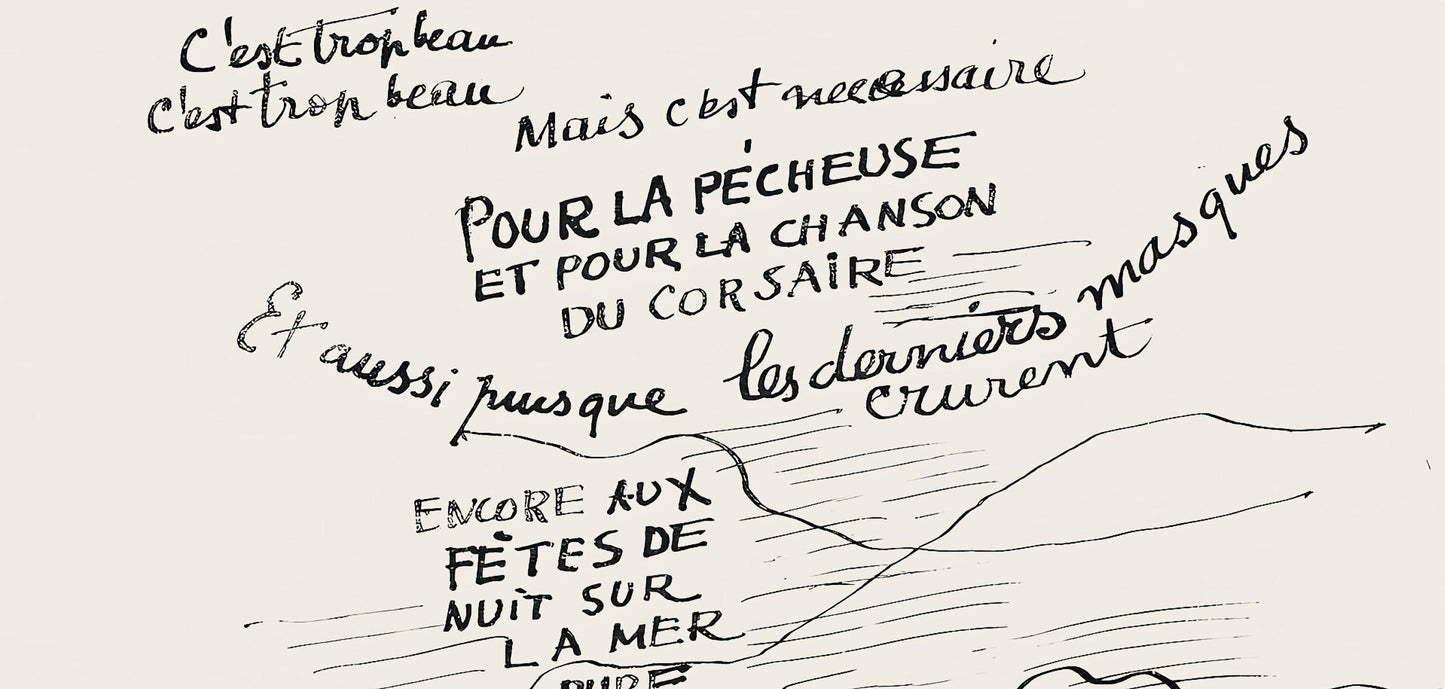 C'est trop beau
c'est trop beau
Mais c'est necessaire
POUR LA PÉCHEUSE
ET POUR LA CHANSON
DU CORSAIRE
Et aussi puisque les derniers masques
crurent
ENCORE AUX
FÊTES DE
NUIT SUR
LA MER
PURE